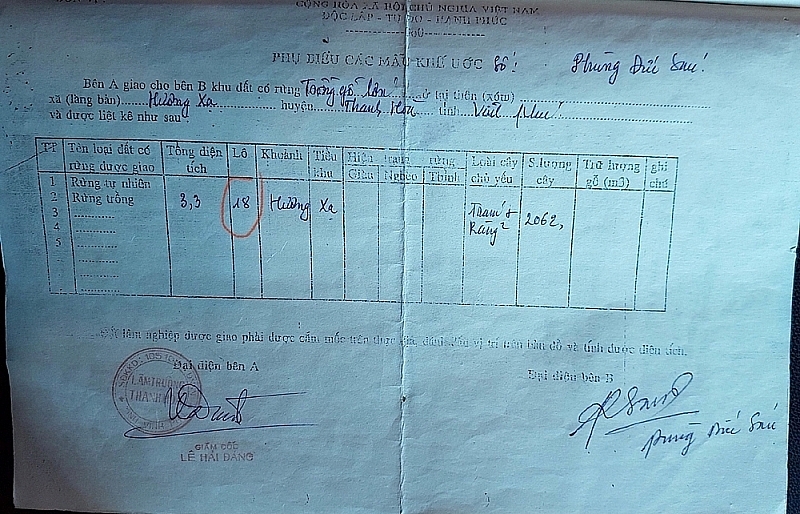 CỘNG HÒA XÃ HỘI CHỦ NGHĨA VIỆT NAM
ĐỘC LẬP - TỰ DO - HẠNH PHÚC
PHỤ BIỂU CÁC MẪU KHẾ ƯỚC Số: Phùng Đức Sáu
Bên A giao cho bên B khu đất có rừng Trồng gỗ lớn ở tại thôn (xóm)
xã (làng bản) Hương Xạ huyện Thanh Hòa tỉnh Vĩnh Phú
và được liệt kê như sau
TT Tên loại đất có rừng được giao Tổng diện tích Lô Khoảnh Tiểu khu Hiện trạng rừng Giàu Nghèo Thịnh Loài cây chủ yếu S.lượng cây Trữ lượng gỗ (m3) ghi chú
1 Rừng tự nhiên
2 Rừng trồng 3,3 18 Hương Xạ 2062,
3
4
5
lâm nghiệp được giao phải được cắm mốc trên thực địa, vị trí trên bản đồ và tính được diện tích.
Đại diện bên A
Đại diện bên B
LÂM TRƯỜNG
GIÁM ĐỐC
LÊ HẢI ĐĂNG
Phùng Đức Sáu